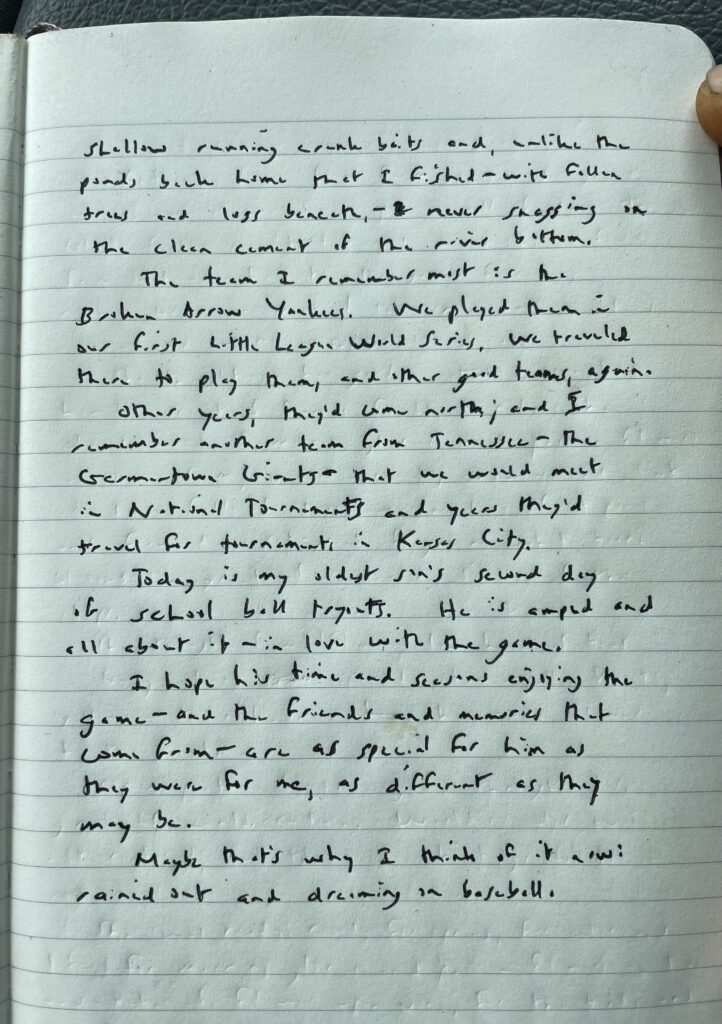 shallow running crank baits and, unlike the
ponds back home that I fished – with fallen
trees and logs beneath, – never snagging on
the clean cement of the river bottom.
The team I remember most is the
Broken Arrow Yankees. We played them in
our first Little League World Series. We traveled
there to play them, and other good teams, again.
Other years, they'd come north; and I
remember another team from Tennessee – the
Germantown Giants – that we would meet
in National Tournaments and years they'd
travel for tournaments in Kansas City.
Today is my oldest son's second day
of school ball tryouts. He is amped and
all about it – in love with the game.
I hope his time and seasons enjoying the
game – and the friends and memories that
come from – are as special for him as
they were for me, as different as they
may be.
Maybe that's why I think of it now:
rained out and dreaming on baseball.